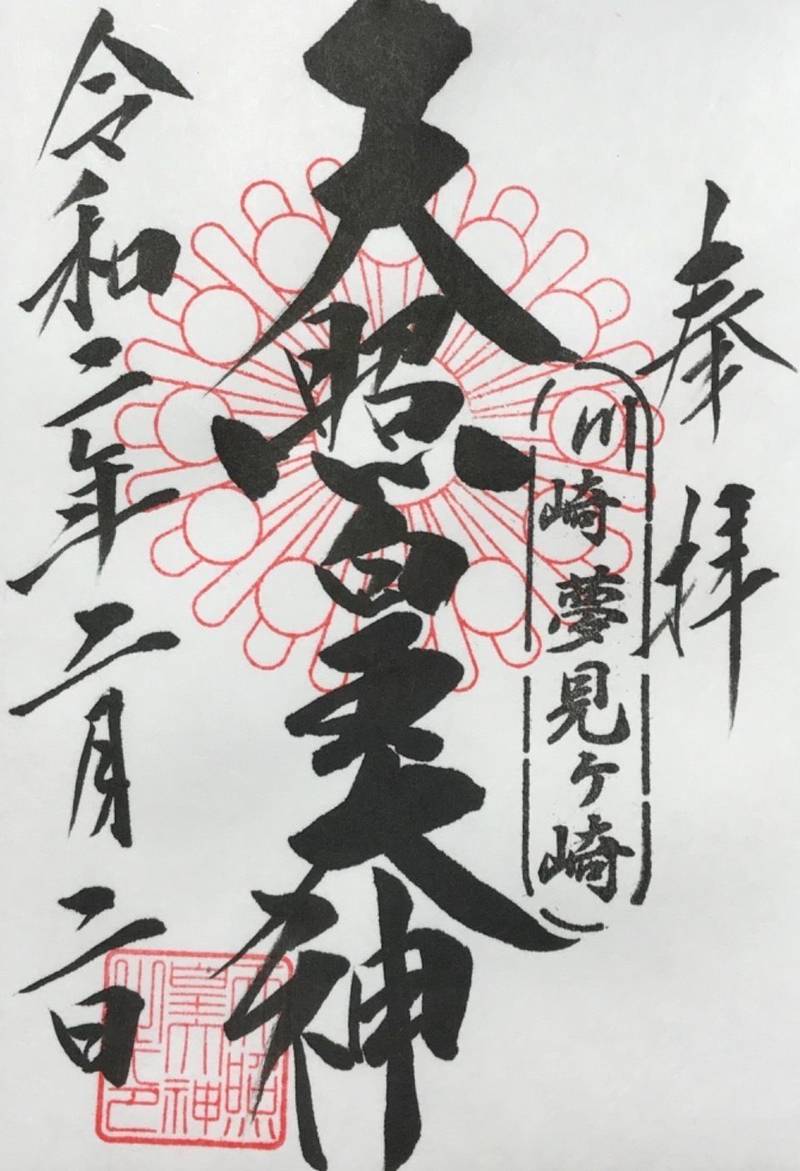 奉拝
川崎夢見ヶ崎
天照皇大神
令和二年二月二日
天照
皇大神